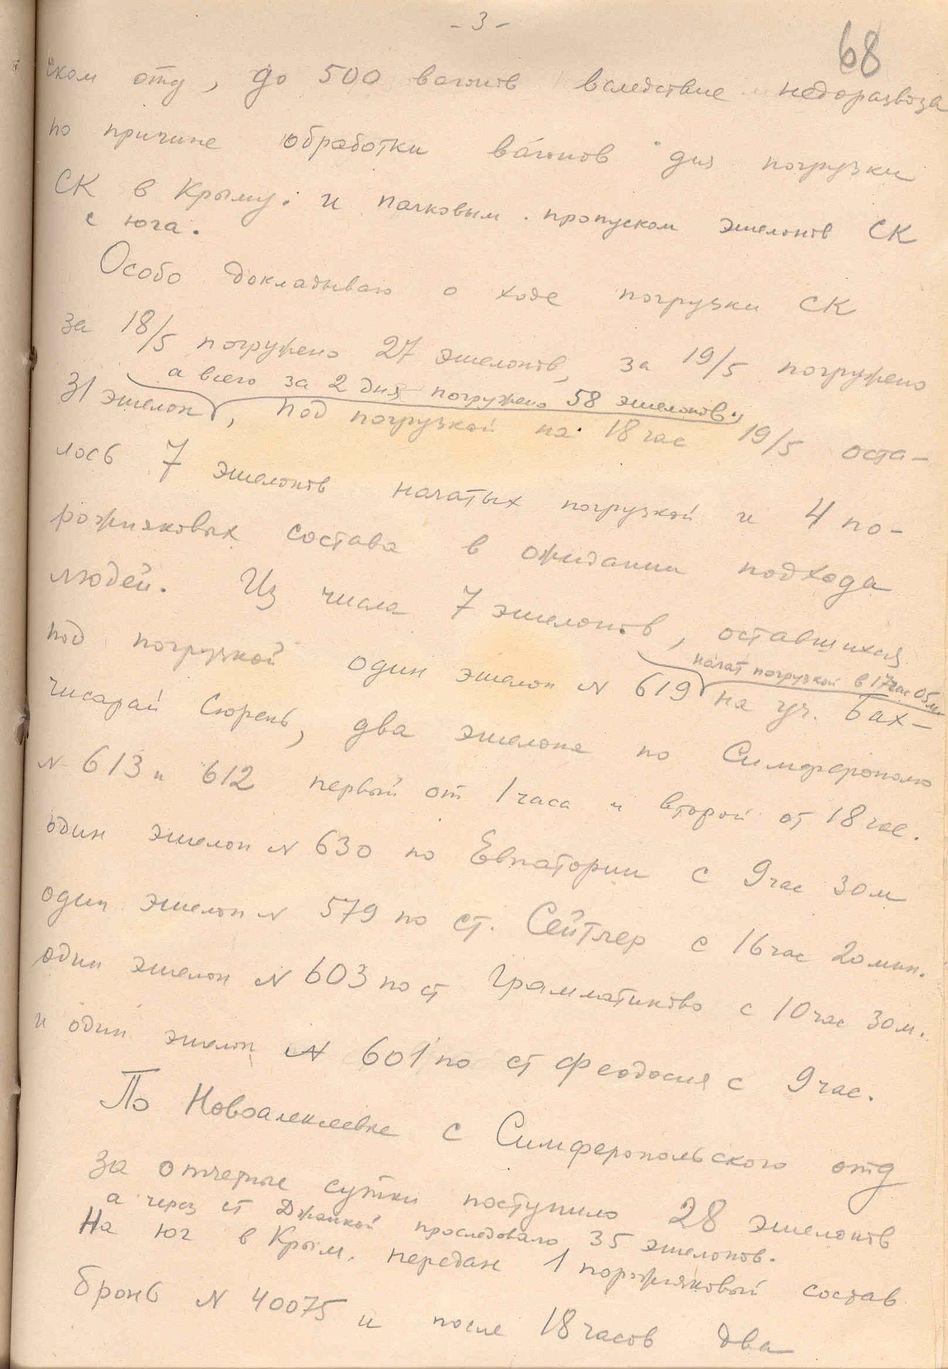 - 3 -
68
ском отд, до 500 вагонов вследствие недоразвоза
по причине обработки вагонов для погрузки
СК в Крыму. и пачковым пропуском эшелонов СК
с юга.
Особо докладываю о ходе погрузки СК
за 18/5 погружено 27 эшелонов, за 19/5 погружено
а всего за 2 дня погружено 58 эшелонов,
31 эшелон, под погрузкой на 18 час 19/5 оста-
лось 7 эшелонов начатых погрузкой и 4 по-
рожняковых состава в ожидании подхода
людей. Из числа 7 эшелонов, оставшихся
начат погрузкой в 17 час 05 м
под погрузкой один эшелон N 619 на уч. Бах-
чисарай Сюрень, два эшелона по Симферополю
N 613 и 612 первый от 1 часа и второй от 18 час.
один эшелон N 630 по Евпатории с 9 час 30 м
один эшелон N 579 по ст. Сейтлер с 16 час 20 мин.
один эшелон N 603 по ст Грамматиково с 10 час 30 м.
и один эшелон N 601 по ст Феодосия с 9 час.
По Новоалексеевке с Симферопольского отд
за отчетные сутки поступило 28 эшелонов
а через ст Джанкой проследовало 35 эшелонов.
На юг в Крым. передан 1 порожняковый состав
бронь N 40075 и после 18 часов два